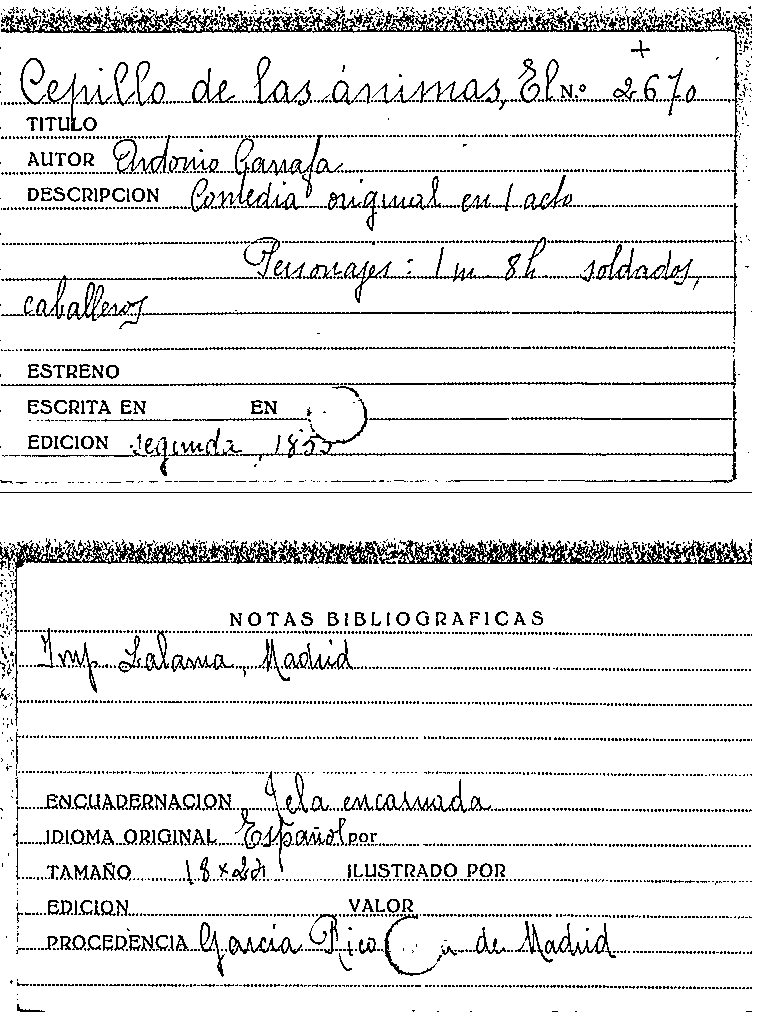 +
Cepillo de las ánimas, El Nº 2670
TITULO
AUTOR Antonio Garrafa
DESCRIPCION Comedia original en 1 acto
Personajes: 1 m 8 h soldados,
caballeros
ESTRENO
ESCRITA EN EN
EDICION segunda, 1855
NOTAS BIBLIOGRAFICAS
Imp Lalama, Madrid
ENCUADERNACION Tela encarnada
IDIOMA ORIGINAL Español por
TAMAÑO 18 x ILUSTRADO POR
EDICION VALOR
PROCEDENCIA García Rico de Madrid